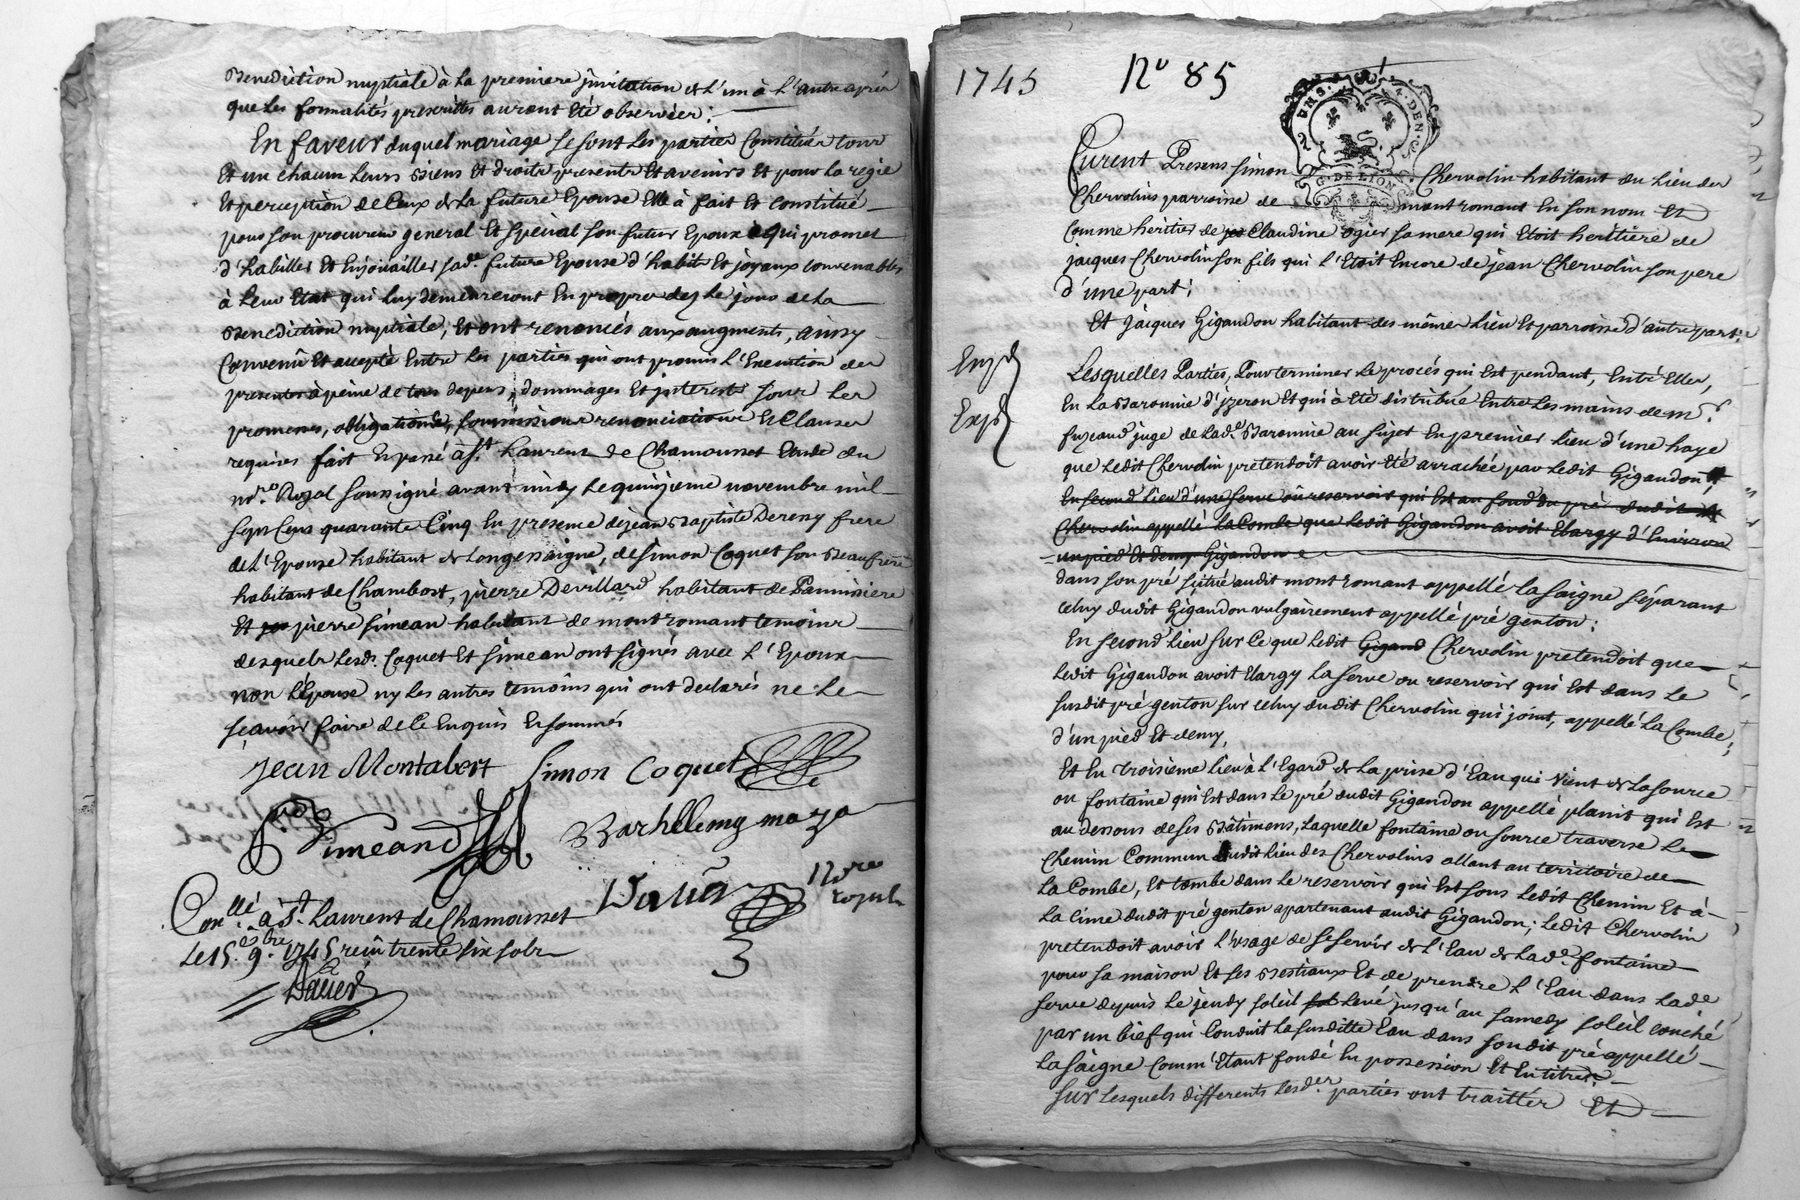 Benediction nuptiale à la premiere jnvitation de L'un à L'autre aprés
que les formalités prescrittes auront été observées;
En faveur duquel mariage se sont les parties Constitués tous
Et un chacun leurs Biens et droits presents Et avenirs Et pour la regie
Et perception de Ceux de la future Epouse Elle à fait Et constitué
pour son procureur general Et special son futur Epoux qui promet
d'habiller Et Enjoüailler sad.e future Epouse d'habits Et joyaux convenables
à leur Etat qui luy demeureront En propre dez le jour de la
Benediction nuptiale, Et ont renoncés aux augments, ainsy
Convenû Et accepté Entre les parties qui ont promis l'Execution des
presentes à peine de tous depens, dommages Et jnterests sous les
promesses, obligations, soumissions renonciations Et Clauses
requises fait Et passé à S.t Laurent de Chamousset Etude du
no.re Royal soussigné avant midy le quinzieme novembre mil
Sept Cens quarante Cinq En presence de jean Baptiste Dereny frere
de l'Epouse habitant de Longessaigne, de Simon Coquet son Beaufrere
habitant de Chambost, pierre Devillard habitant de Pannissiere
Et pierre Simean habitant de montromant temoins
desquels lesd. Coquet Et Simean ont signés avec l'Epoux
non l'Epouse ny les autres temoins qui ont declarés ne le
sçavoir faire de Ce Enquis Et sommés
jean Montabert Simon Coquet
Simeand Barhellemy maza
no.re royal
Con.llé à S.t Laurent de Chamousset
Le 15.e 9.bre 1745 reçû trente six sols
1745 N° 85
G. DE LION
Furent Presens Simon Chervolin habitant du Lieu des
Chervolins parroisse de montromant En son nom Et
Comme héritier de Claudine ogier sa mere qui Etoit heritiere de
jacques Chervolin son fils qui l'Etoit Encore de jean Chervolin son pere
d'une part;
Et Jacques Gigandon habitant des mêmes Lieu Et parroisse d'autre part;
Lesquelles Parties, Pour terminer le procés qui Est pendant, Entre Elles,
En la Baronnie d'jzeron Et qui à Eté distribué Entre les mains de m.r
juge de lad.e Baronnie au sujet En premier Lieu d'une haye
que ledit Chervolin pretendoit avoir Eté arrachée par ledit Gigandon
En second Lieu d'une serve ou reservoir qui Est au fond du pré dudit
Chervolin appellé la Combe que ledit Gigandon avoit Elargy d'Environ
un pied Et demy Gigandon
dans son pré situé audit montromant appellé la saigne séparant
celuy dudit Gigandon vulgairement appellé pré genton;
En second Lieu sur ce que ledit Gigand Chervolin pretendoit que
ledit Gigandon avoit Elargy la serve ou reservoir qui Est dans le
susdit pré genton sur celuy dudit Chervolin qui joint, appellé La Combe,
d'un pied Et demy,
Et En troisieme Lieu à l'Egard de la prise d'Eau qui vient de la source
ou fontaine qui Est dans le pré dudit Gigandon appellé planit qui Est
au dessous de ses Bâtimens, laquelle fontaine ou source traverse le
Chemin Commun dudit Lieu des Chervolins allant au territoire de
la Combe, Et tombe dans le reservoir qui Est sous ledit Chemin Et à
la cime dudit pré genton apartenant audit Gigandon; ledit Chervolin
pretendoit avoir l'usage de se servir de l'Eau de lad.e fontaine
pour sa maison Et ses Bestiaux Et de prendre l'Eau dans lad.e
serve depuis le jeudy soleil levé jusqu'au samedy soleil couché
par un bief qui Conduit la susditte Eau dans son dit pré appellé
la saigne Comm'Etant fondé En possession Et En titres;
sur lesquels differents lesd.es parties ont traittés Et